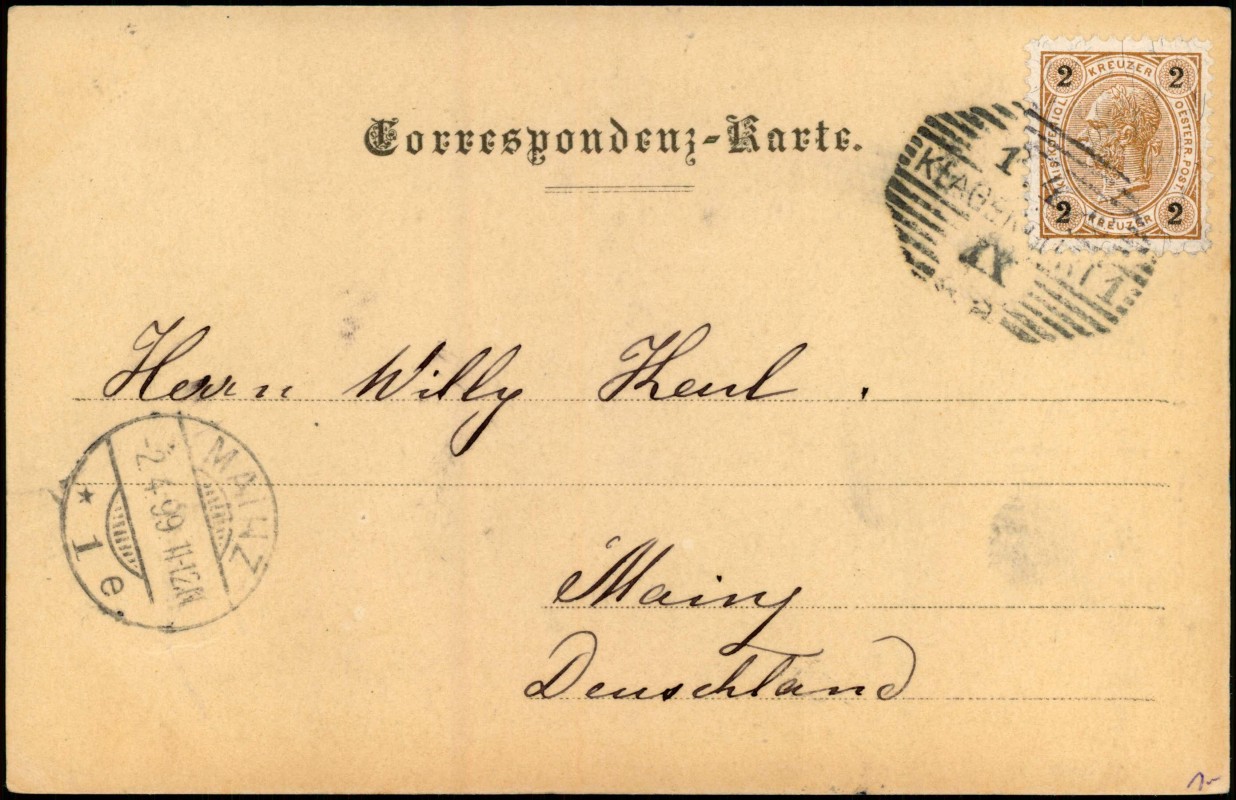 Correspondenz-Karte.
2 KREUZER 2
KAIS. KOENIGL. OESTERR. POST
2 KREUZER 2
KLAGENFURT 1
IX
Herrn Willy Keul.
MAINZ
-2.4.99.11-12N
* 1 e
Mainz
Deutschland